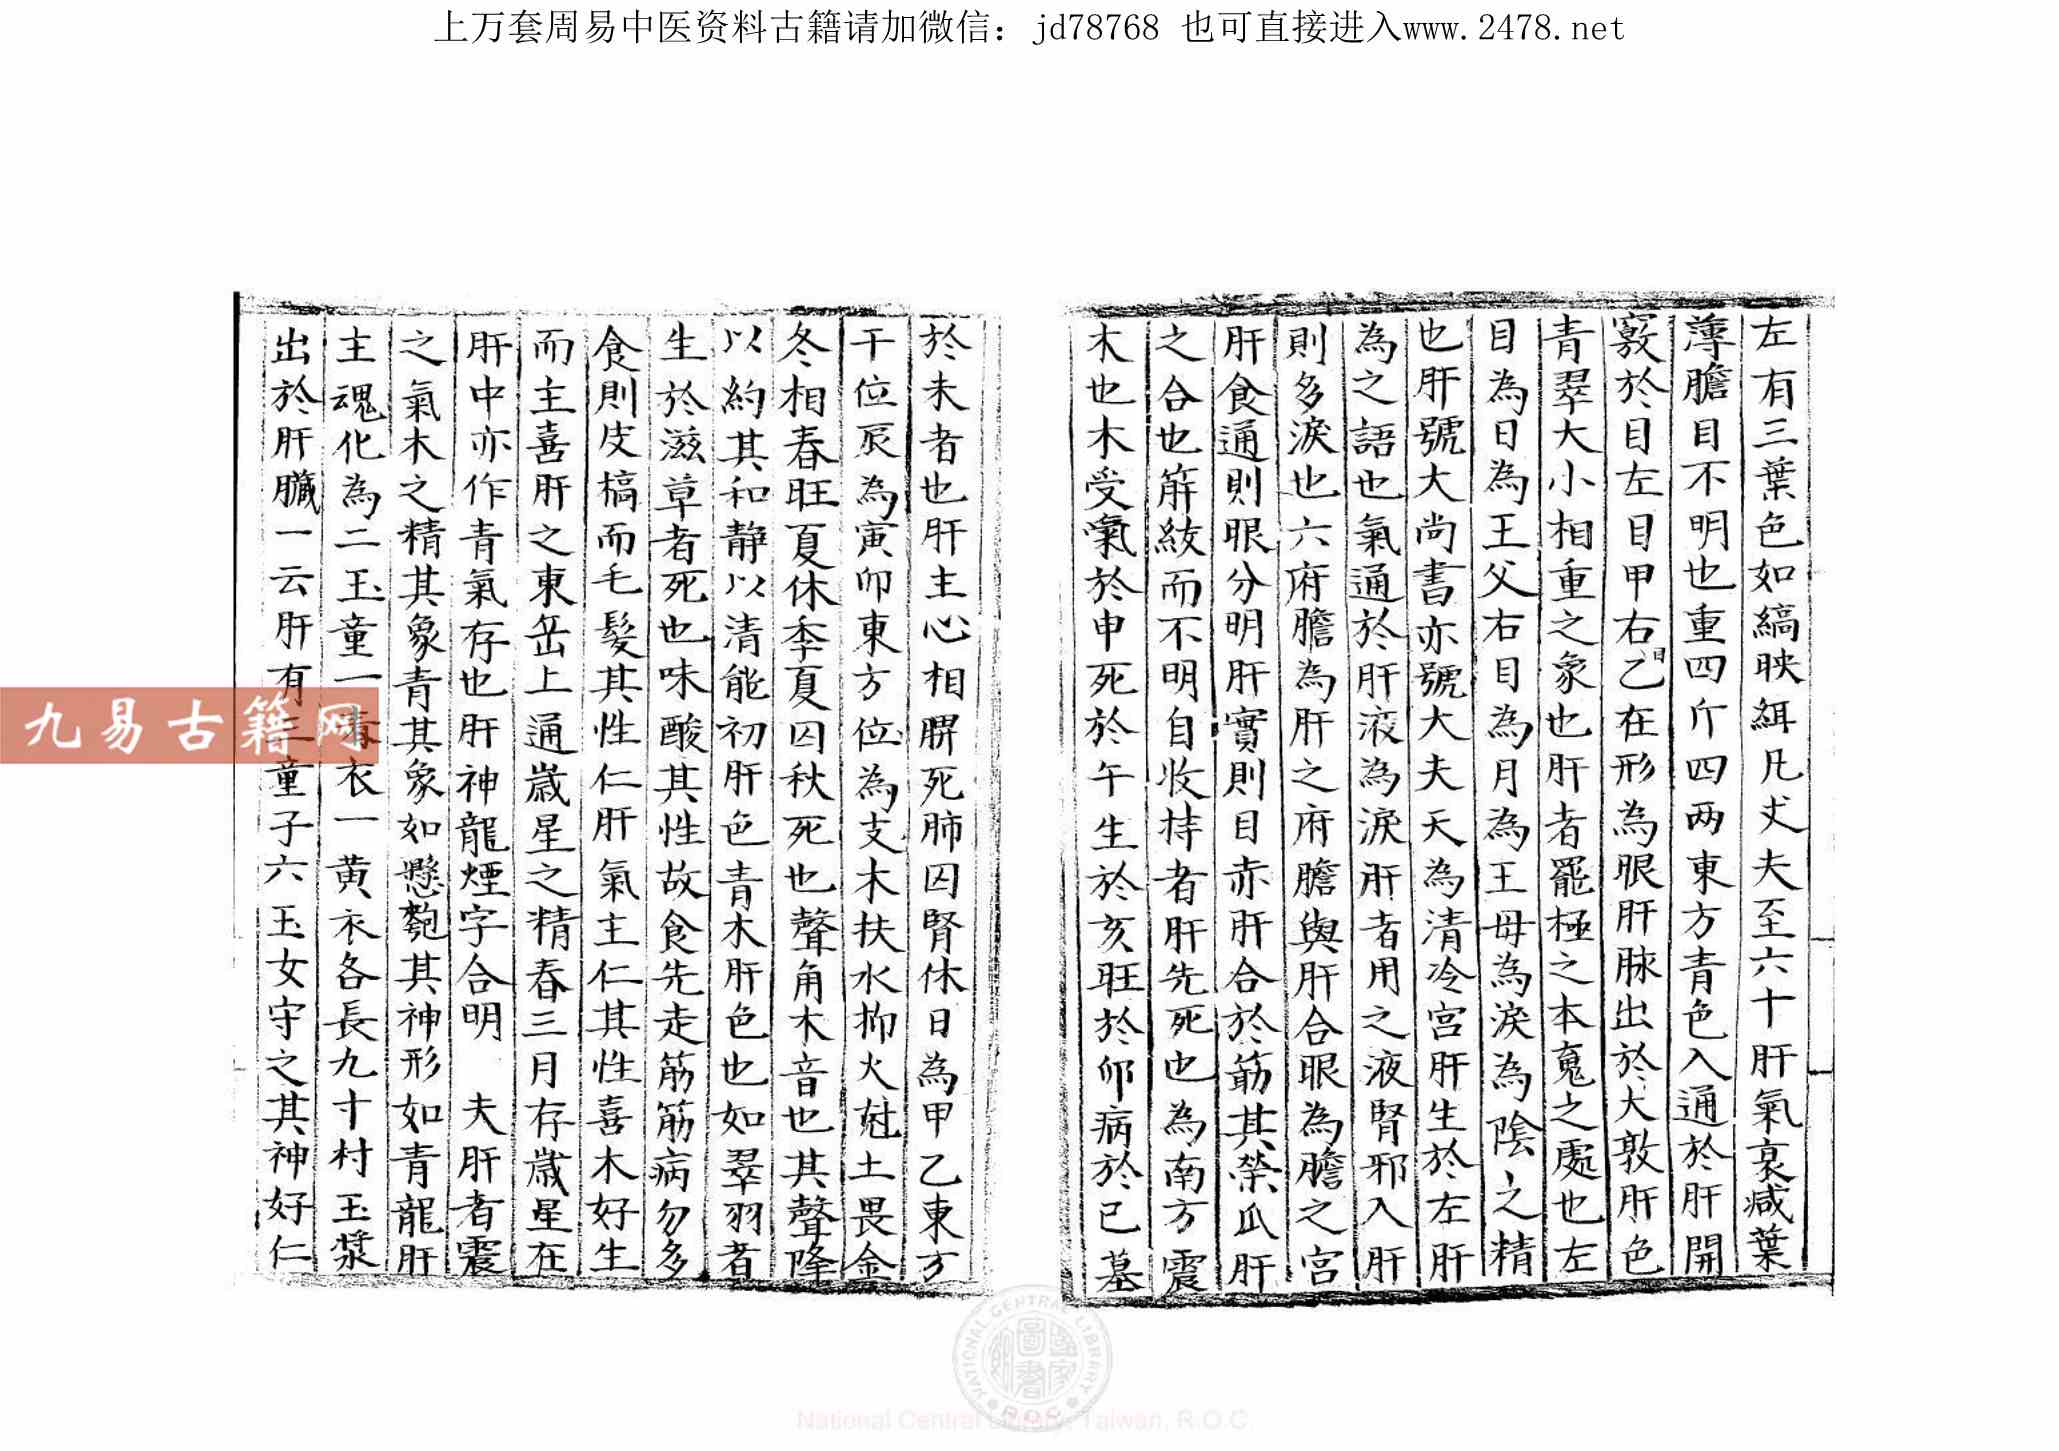 上万套周易中医资料古籍请加微信：jd78768 也可直接进入www.2478.net
左有三葉色如縞映絓凡丈夫至六十肝氣衰减葉
薄膽目不明也重四斤四两東方青色入通於肝開
竅於目左目甲右目乙在形為眼肝脉出於大敦肝色
青翠大小相重之象也肝者罷極之本䰟之處也左
目為日為王父右目為月為王母為淚為陰之精
也肝號大尚書亦號大夫天為清冷宫肝生於左肝
為之語也氣通於肝液為淚肝者用之液腎邪入肝
則多淚也六府膽為肝之府膽與肝合眼為膽之宫
肝食通則眼分明肝實則目赤肝合於筋其榮爪肝
之合也觧紋而不明自收持者肝先死也為南方震
木也木受氣於申死於午生於亥旺於卯病於巳墓
於未者也肝主心相脾死肺囚腎休日為甲乙東方
干位辰為寅卯東方位為支木扶水抑火尅土畏金
冬相春旺夏休季夏囚秋死也聲角木音也其聲降
以約其和静以清能初肝色青木肝色也如翠羽者
生於滋草者死也味酸其性故食先走筋筋病勿多
食則皮槁而毛髮其性仁肝氣主仁其性喜木好生
而主喜肝之東岳上通歲星之精春三月存歲星在
肝中亦作青氣存也肝神龍煙字合明 夫肝者震
之氣木之精其象青其象如懸匏其神形如青龍肝
主魂化為二玉童一青衣一黄衣各長九寸村玉漿
出於肝臟一云肝有三童子六玉女守之其神好仁
九易古籍网
NATIONAL CENTRAL LIBRARY
R.O.C.
國家圖書館
National Central Library, Taiwan, R.O.C